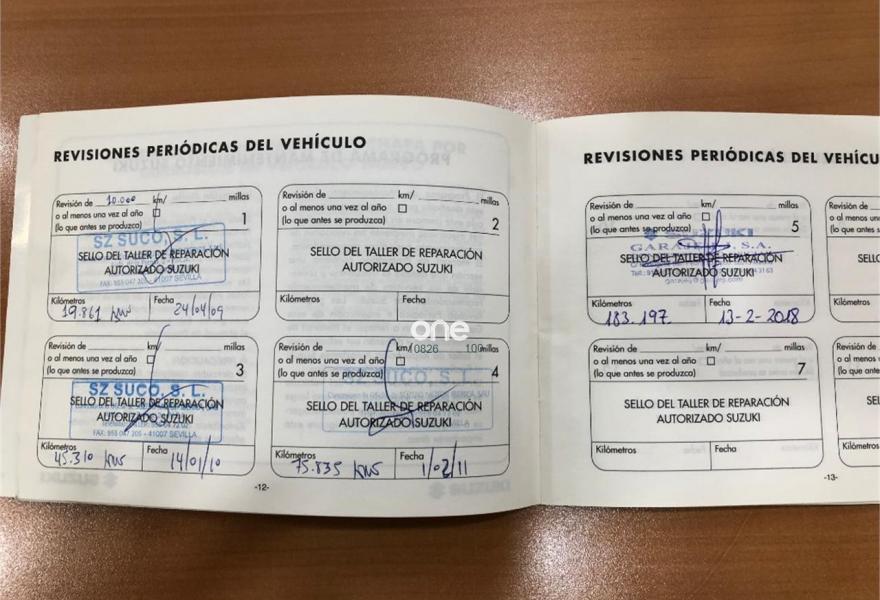 REVISIONES PERIÓDICAS DEL VEHÍCULO
Revisión de 10.000 km/ millas
o al menos una vez al año
(lo que antes se produzca)
1
SZ SUCO, S. L.
SELLO DEL TALLER DE REPARACIÓN
AUTORIZADO SUZUKI
FAX: 955 047 205 - 41007 SEVILLA
Kilómetros Fecha
19.861 kms 24/04/09
Revisión de km/ millas
o al menos una vez al año
(lo que antes se produzca)
2
SELLO DEL TALLER DE REPARACIÓN
AUTORIZADO SUZUKI
Kilómetros Fecha
one
Revisión de km/ millas
o al menos una vez al año
(lo que antes se produzca)
3
SZ SUCO, S. L.
SELLO DEL TALLER DE REPARACIÓN
AUTORIZADO SUZUKI
FAX: 955 047 205 - 41007 SEVILLA
Kilómetros Fecha
45.310 kms 14/01/10
Revisión de km/ 0826 100 millas
o al menos una vez al año
(lo que antes se produzca)
4
SZ SUCO, S. L.
SELLO DEL TALLER DE REPARACIÓN
AUTORIZADO SUZUKI
Kilómetros Fecha
75.835 kms 1/02/11
-12-
REVISIONES PERIÓDICAS DEL VEHÍCU
Revisión de km/ millas
o al menos una vez al año
(lo que antes se produzca)
5
SUZUKI
S.A.
SELLO DEL TALLER DE REPARACIÓN
AUTORIZADO SUZUKI
Kilómetros Fecha
183.197 13-2-2018
Revisión de
o al menos un
(lo que antes s
SELLO
Kilómetros
Revisión de km/ millas
o al menos una vez al año
(lo que antes se produzca)
7
SELLO DEL TALLER DE REPARACIÓN
AUTORIZADO SUZUKI
Kilómetros Fecha
Revisión de
o al menos
(lo que ante
SEL
Kilómetros
-13-